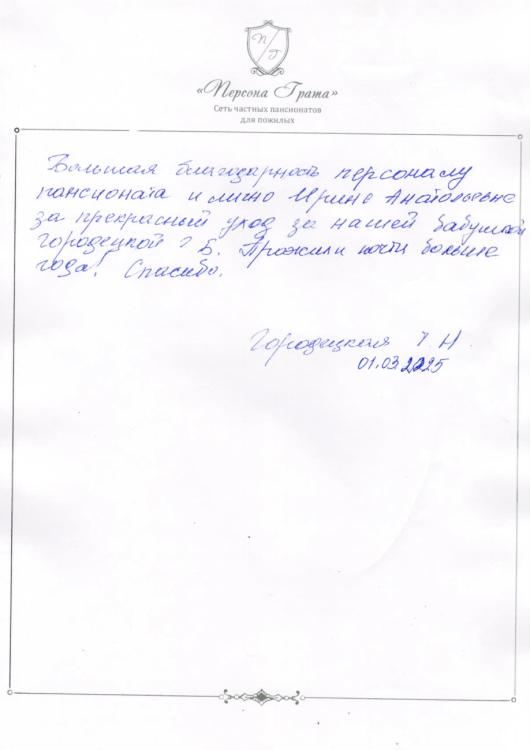 П
Г
«Персона Грата»
Сеть частных пансионатов
для пожилых
Большая благодарность персоналу
пансионата и лично Ирине Анатольевне
за прекрасный уход за нашей бабушкой
Городецкой Г Б. Прожили почти больше
года! Спасибо.
Городецкая Т. Н
01.03.2025